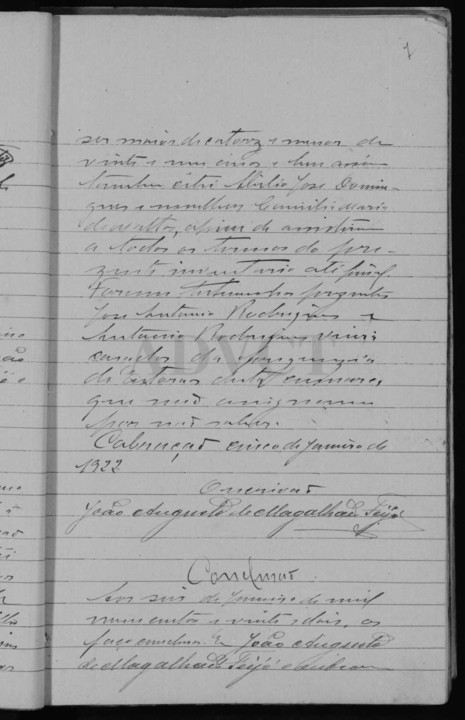 7
ser maior de catorze e menor de
vinte e um anos e bem assim
tambem citei Abilio Jose Domin-
gues e mulher Emilia Maria
de a fim de assistirem
a todos os termos do pre-
zente inventario até final.
Foram testemunhas prezentes
Jose Antonio Rodrigues e
Antonio Rodrigues
casados da freguezia
de Estorãos desta comarca,
que não assignam
por não saber.
Cabração cinco de Janeiro de
1922
O escrivão
João Augusto de Magalhães Feijó
Conclusão
Aos seis de Janeiro de mil
novecentos e vinte e dois, os
faço conclusos. Eu João Augusto
de Magalhães Feijó o escrevi
ADVCT